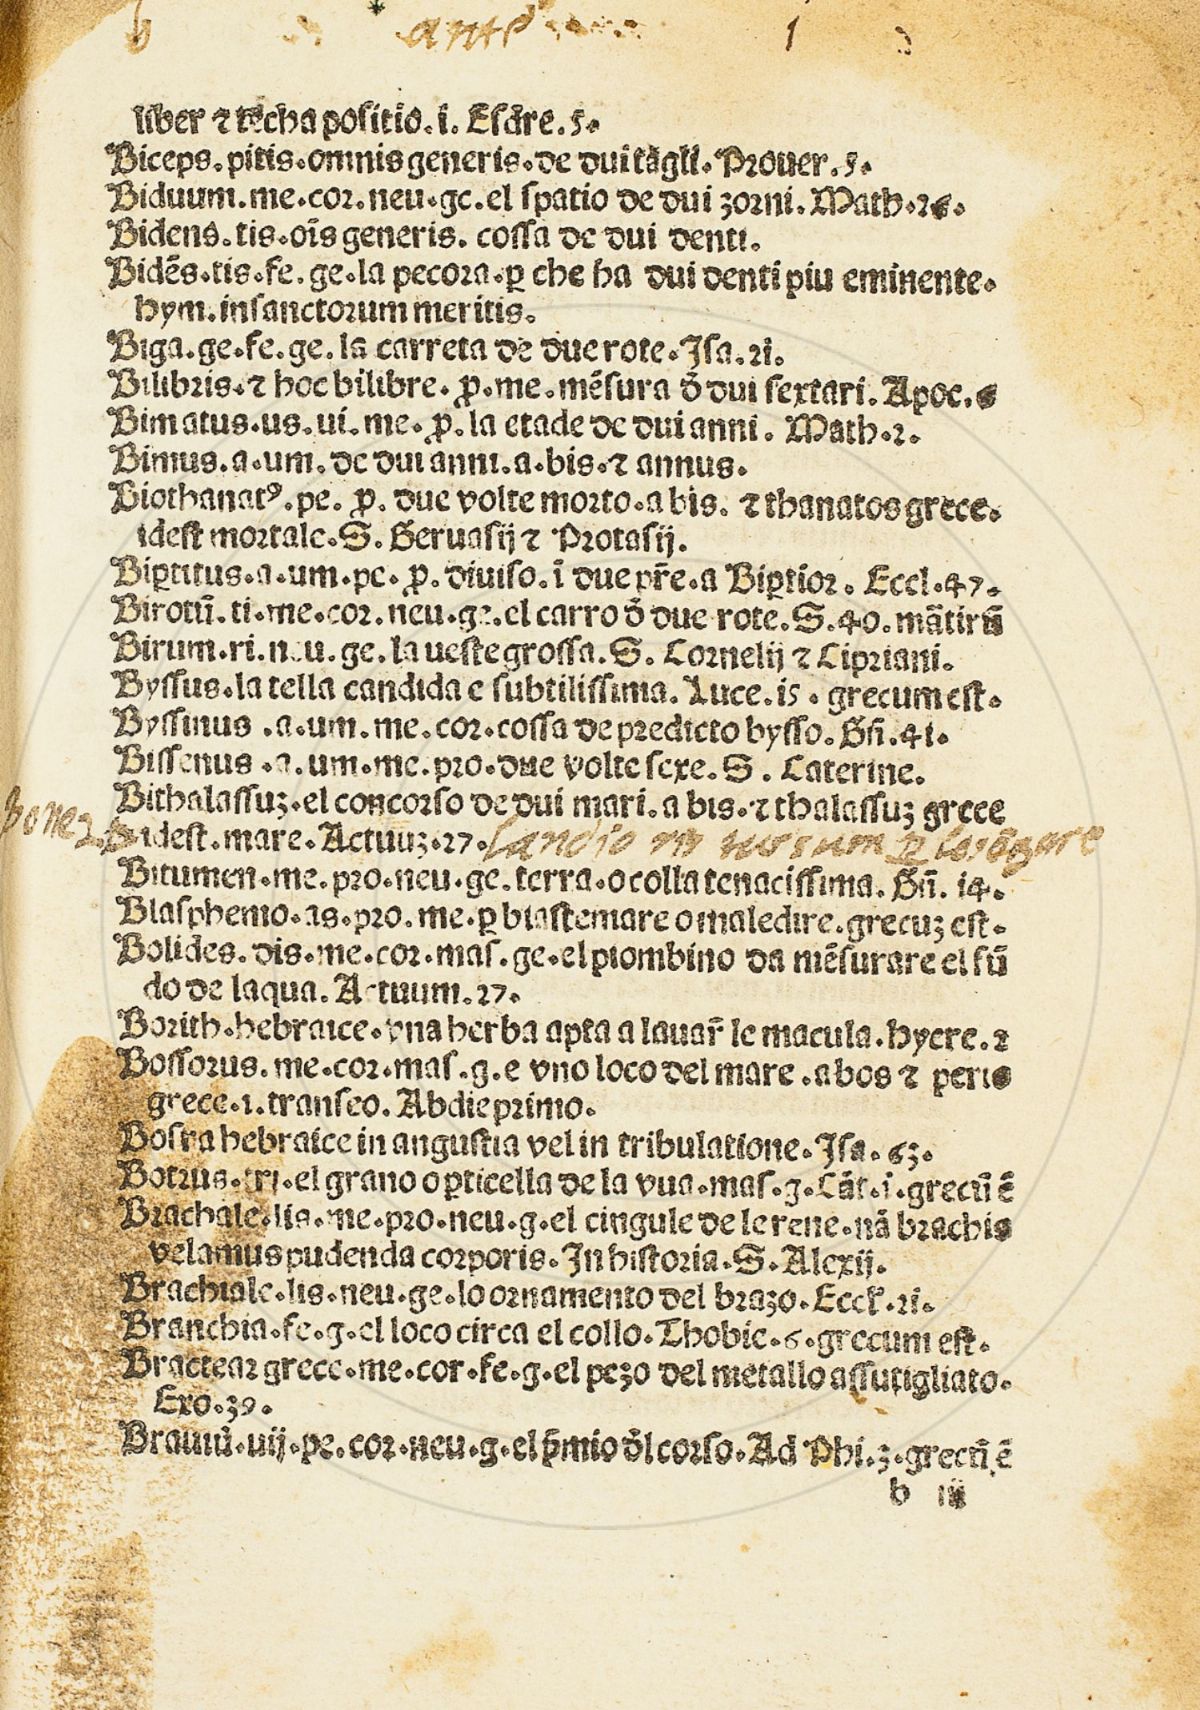 liber ⁊ techa positio. i. Esdre. 5.
Biceps. pitis. omnis generis. de dui tāgli. Prouer. 5.
Biduum. me. cor. neu. ge. el spatio de dui zorni. Math. 26.
Bidens. tis. oīs generis. cossa de dui denti.
Bidēs. tis. fe. ge. la pecora. ꝑ che ha dui denti piu eminente.
hym. in sanctorum meritis.
Biga. ge. fe. ge. la carreta de due rote. Isa. 21.
Bilibris. ⁊ hoc bilibre. ꝓ. me. mēsura ð dui sextari. Apoc. 6
Bimatus. us. ui. me. ꝓ. la etade de dui anni. Math. 2.
Bimus. a. um. de dui anni. a. bis. ⁊ annus.
Biothanatꝰ. pe. ꝓ. due volte morto. a bis. ⁊ thanatos grece.
idest mortale. S. Geruasij ⁊ Protasij.
Biꝑtitus. a. um. pe. ꝓ. diuiso. ī due pr̄e. a Biꝑtior. Eccl. 47.
Birotū. ti. me. cor. neu. ge. el carro ð due rote. S. 40. mātirū
Birum. ri. neu. ge. la ueste grossa. S. Cornelij ⁊ Cipriani.
Byssus. la tella candida e subtilissima. Luce. 15. grecum est.
Byssinus. a. um. me. cor. cossa de predicto bysso. Gn̄. 41.
Bissenus. a. um. me. pro. due volte sexe. S. Caterine.
Bithalassuꝫ. el concorso de dui mari. a bis. ⁊ thalassuꝫ grece
idest. mare. Actuuꝫ. 27.
Bitumen. me. pro. neu. ge. terra. o colla tenacissima. Gn̄. 14.
Blasphemo. as. pro. me. ꝑ biastemare o maledire. grecuꝫ est.
Bolides. dis. me. cor. mas. ge. el piombino da mēsurare el fū
do de laqua. Actuum. 27.
Borith. hebraice. vna herba apta a lauar̄ le macula. hyere. 2
Bossorus. me. cor. mas. g. e vno loco del mare. a bos ⁊ peris
grece. i. transeo. Abdie primo.
Bosra hebraice in angustia vel in tribulatione. Isa. 63.
Botrus. tri. el grano o ꝑticella de la vua. mas. g. Cāt. i. grecū ē
Brachale. lis. me. pro. neu. g. el cingule de le rene. nā brachis
velamus pudenda corporis. In historia. S. Alexij.
Brachiale. lis. neu. ge. lo ornamento del brazo. Eccł. 21.
Branchia. fe. g. el loco circa el collo. Thobie. 6. grecum est.
Bractear grece. me. cor. fe. g. el pezo del metallo assutigliato.
Exo. 39.
Brauiū. uij. pe. cor. neu. g. el p̄mio ðl corso. Ad Phi. 3. grecū ē
b iii